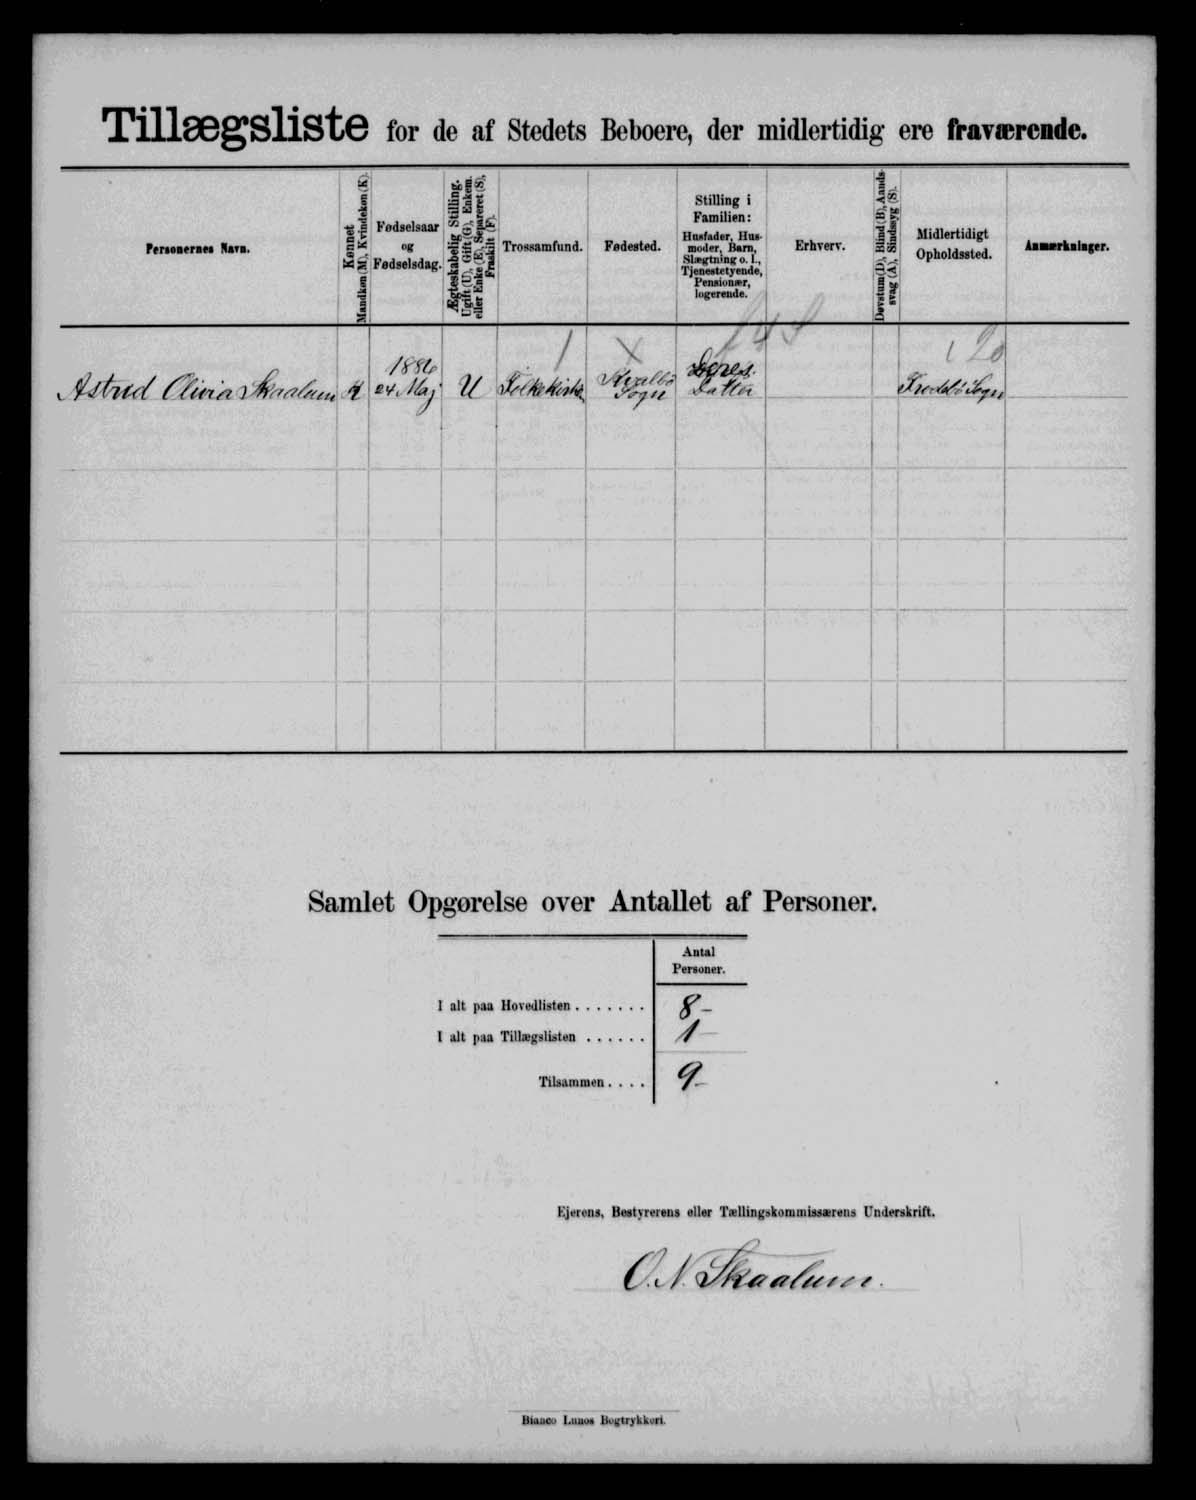 Tillægsliste for de af Stedets Beboere, der midlertidig ere fraværende.
Personernes Navn.
Kønnet
Mandkøn (M), Kvindekøn (K).
Fødselsaar
og
Fødselsdag.
Ægteskabelig Stilling.
Ugift (U), Gift (G), Enkem.
eller Enke (E), Separeret (S),
Fraskilt (F).
Trossamfund.
Fødested.
Stilling i
Familien:
Husfader, Hus-
moder, Barn,
Slægtning o. l.,
Tjenestetyende,
Pensionær,
logerende.
Erhverv.
Døvstum (D), Blind (B), Aands-
svag (A), Sindssyg (S).
Midlertidigt
Opholdssted.
Anmærkninger.
Astrid Olivia Skaalum
K
1886
24 Maj
U
Folkekirke
Kvalbø
Sogn
Deres
Datter
Frodebø Sogn
Samlet Opgørelse over Antallet af Personer.
Antal
Personer.
I alt paa Hovedlisten . . . . . . . 8-
I alt paa Tillægslisten . . . . . . 1-
Tilsammen . . . . 9-
Ejerens, Bestyrerens eller Tællingskommissærens Underskrift.
O. N. Skaalum.
Bianco Lunos Bogtrykkeri.